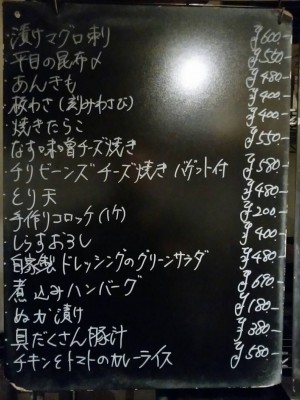 ・漬けマグロ刺 ¥600-
・平目の昆布〆 ¥550-
・あんきも ¥480-
・板わさ（刻みわさび） ¥400-
・焼きたらこ ¥400-
・なす味噌チーズ焼き ¥550-
・チリビーンズチーズ焼き バゲット付 ¥580-
・とり天 ¥480-
・手作りコロッケ（1ケ） ¥200-
・しらすおろし ¥400-
・自家製ドレッシングのグリーンサラダ ¥480-
・煮込みハンバーグ ¥670-
・ぬか漬け ¥180-
・具だくさん豚汁 ¥380-
・チキンとトマトのカレーライス ¥580-